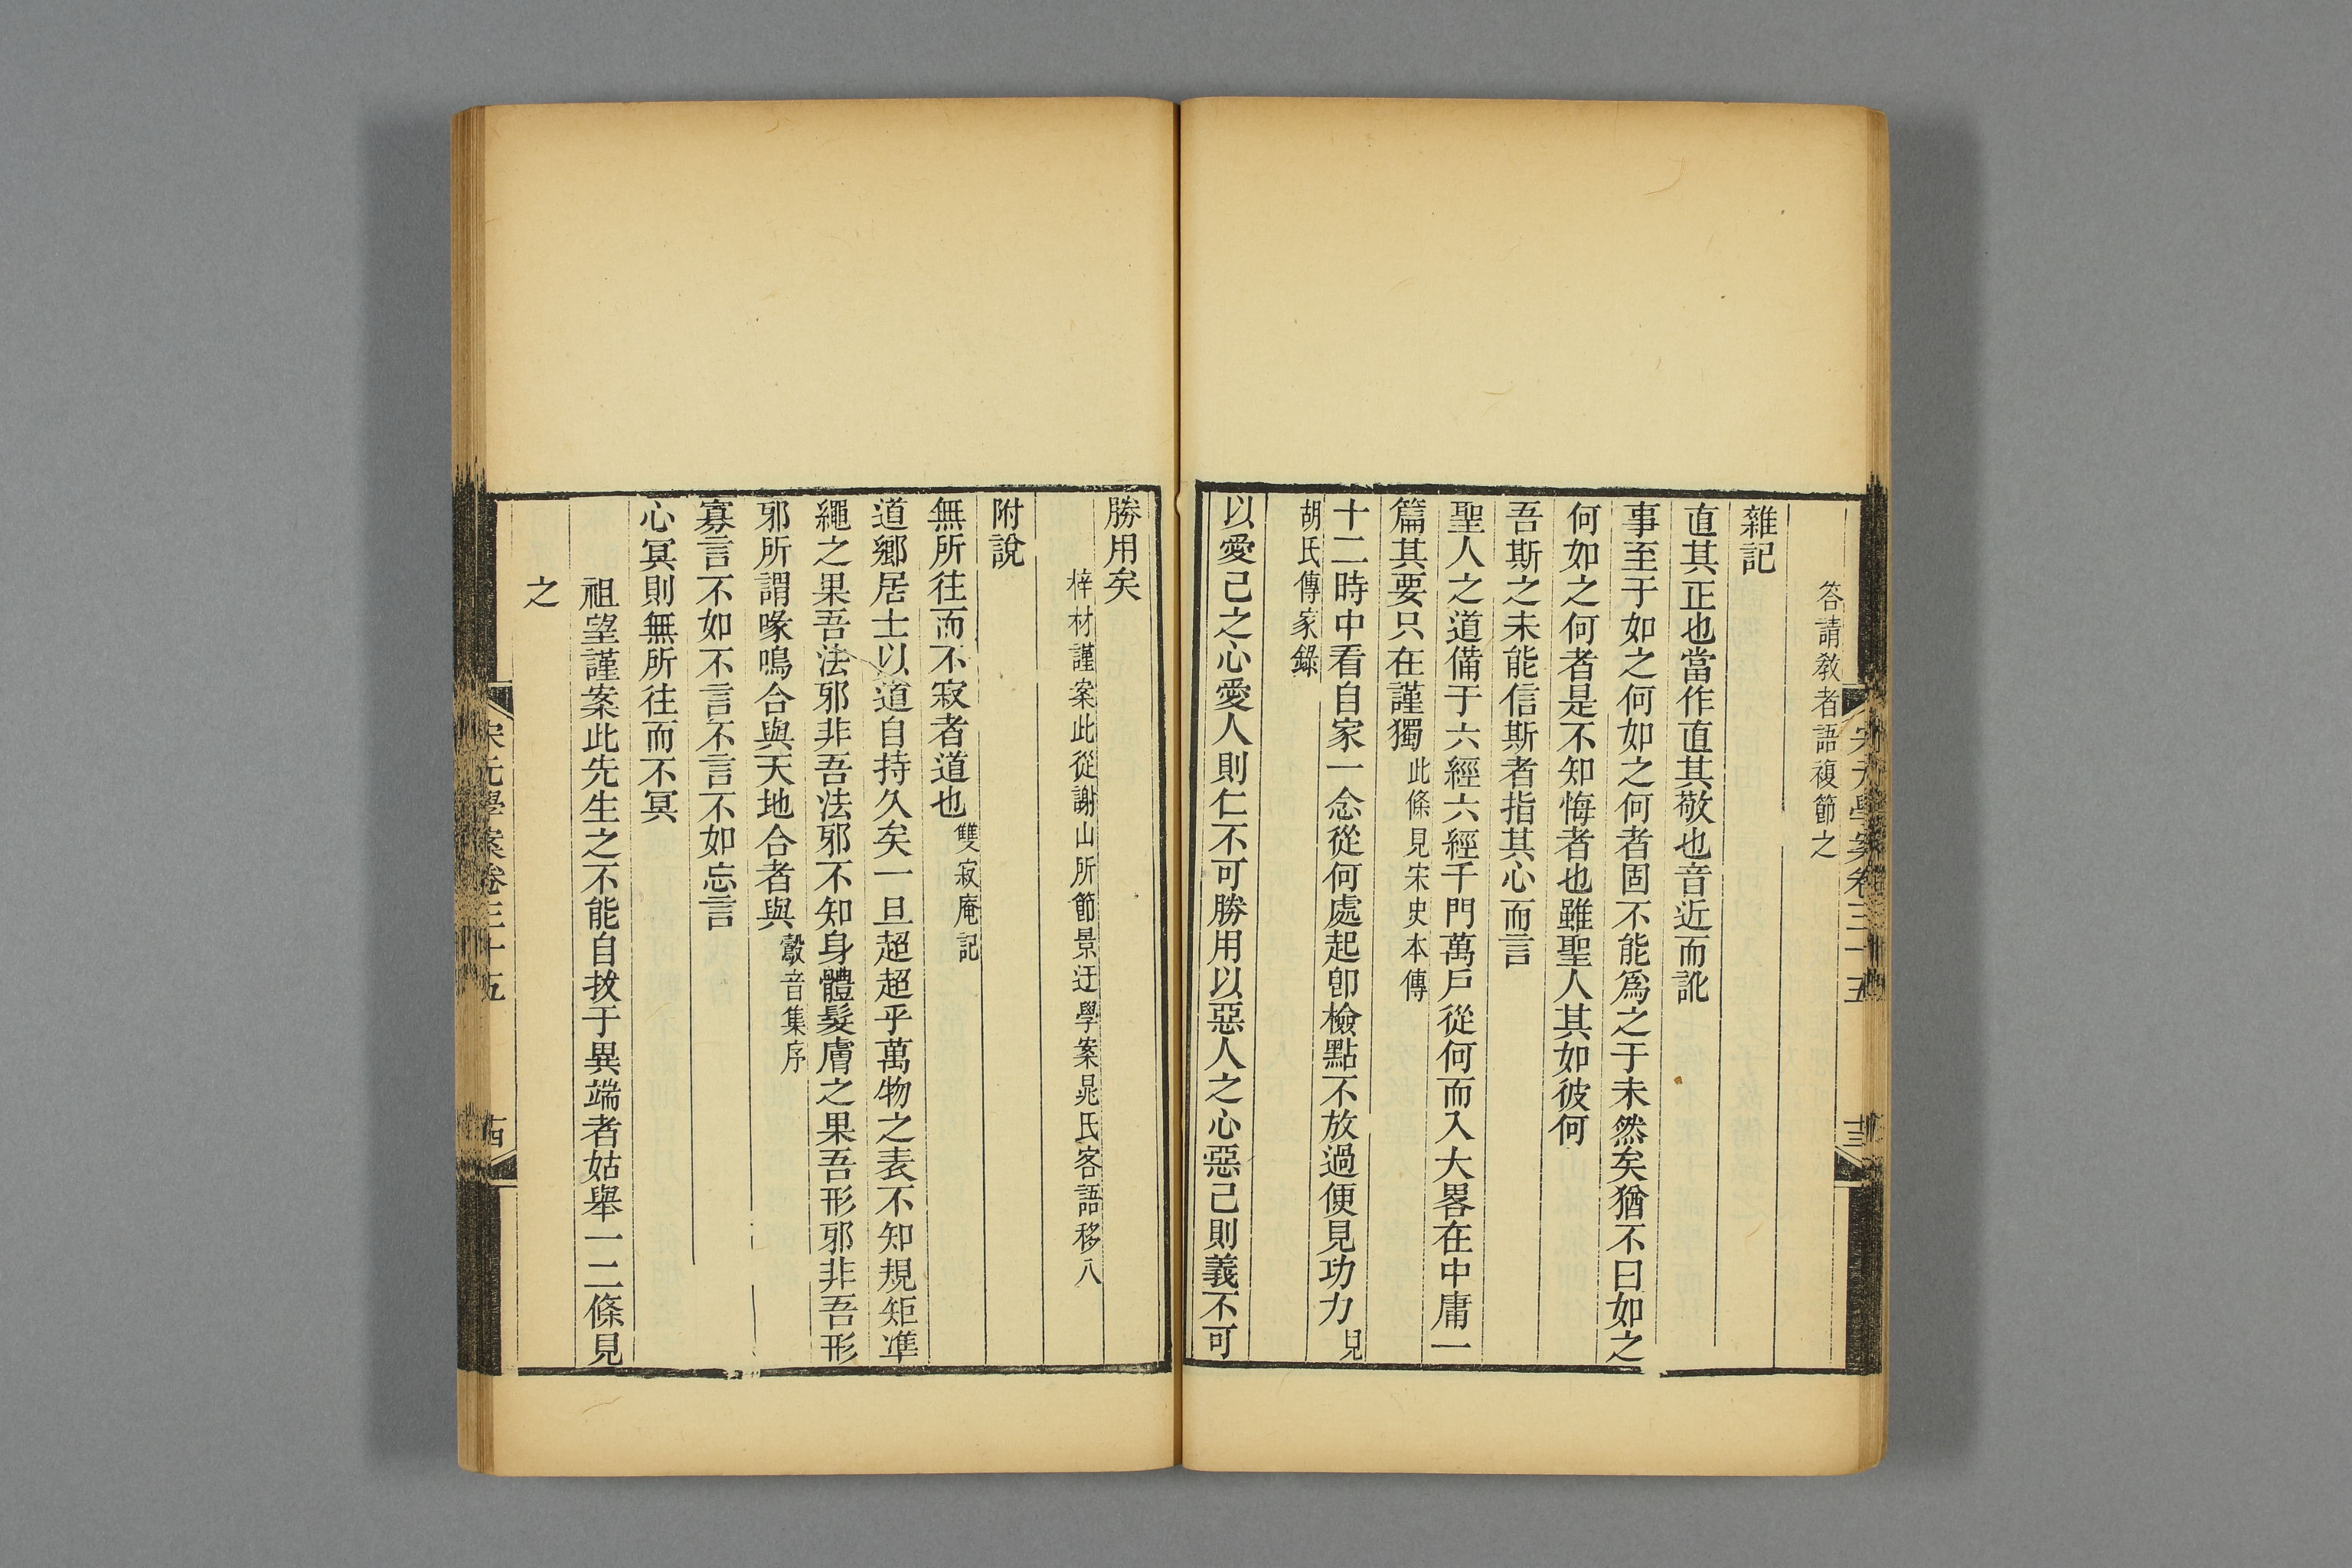 宋元學案卷三十五
十三
答請敎者語複節之
雜記
直其正也當作直其敬也音近而訛
事至于如之何如之何者固不能爲之于未然矣猶不曰如之
何如之何者是不知悔者也雖聖人其如彼何
吾斯之未能信斯者指其心而言
聖人之道備于六經六經千門萬戶從何而入大畧在中庸一
篇其要只在謹獨此條見宋史本傳
十二時中看自家一念從何處起卽檢點不放過便見功力見
胡氏傳家錄
以愛己之心愛人則仁不可勝用以惡人之心惡己則義不可
勝用矣
梓材謹案此從謝山所節景迂學案晁氏客語移入
附說
無所往而不寂者道也雙寂庵記
道鄉居士以道自持久矣一旦超超乎萬物之表不知規矩準
繩之果吾法邪非吾法邪不知身體髮膚之果吾形邪非吾形
邪所謂喙鳴合與天地合者與鷇音集序
寡言不如不言不言不如忘言
心冥則無所往而不冥
祖望謹案此先生之不能自拔于異端者姑舉一二條見
之
宋元學案卷三十五
十四